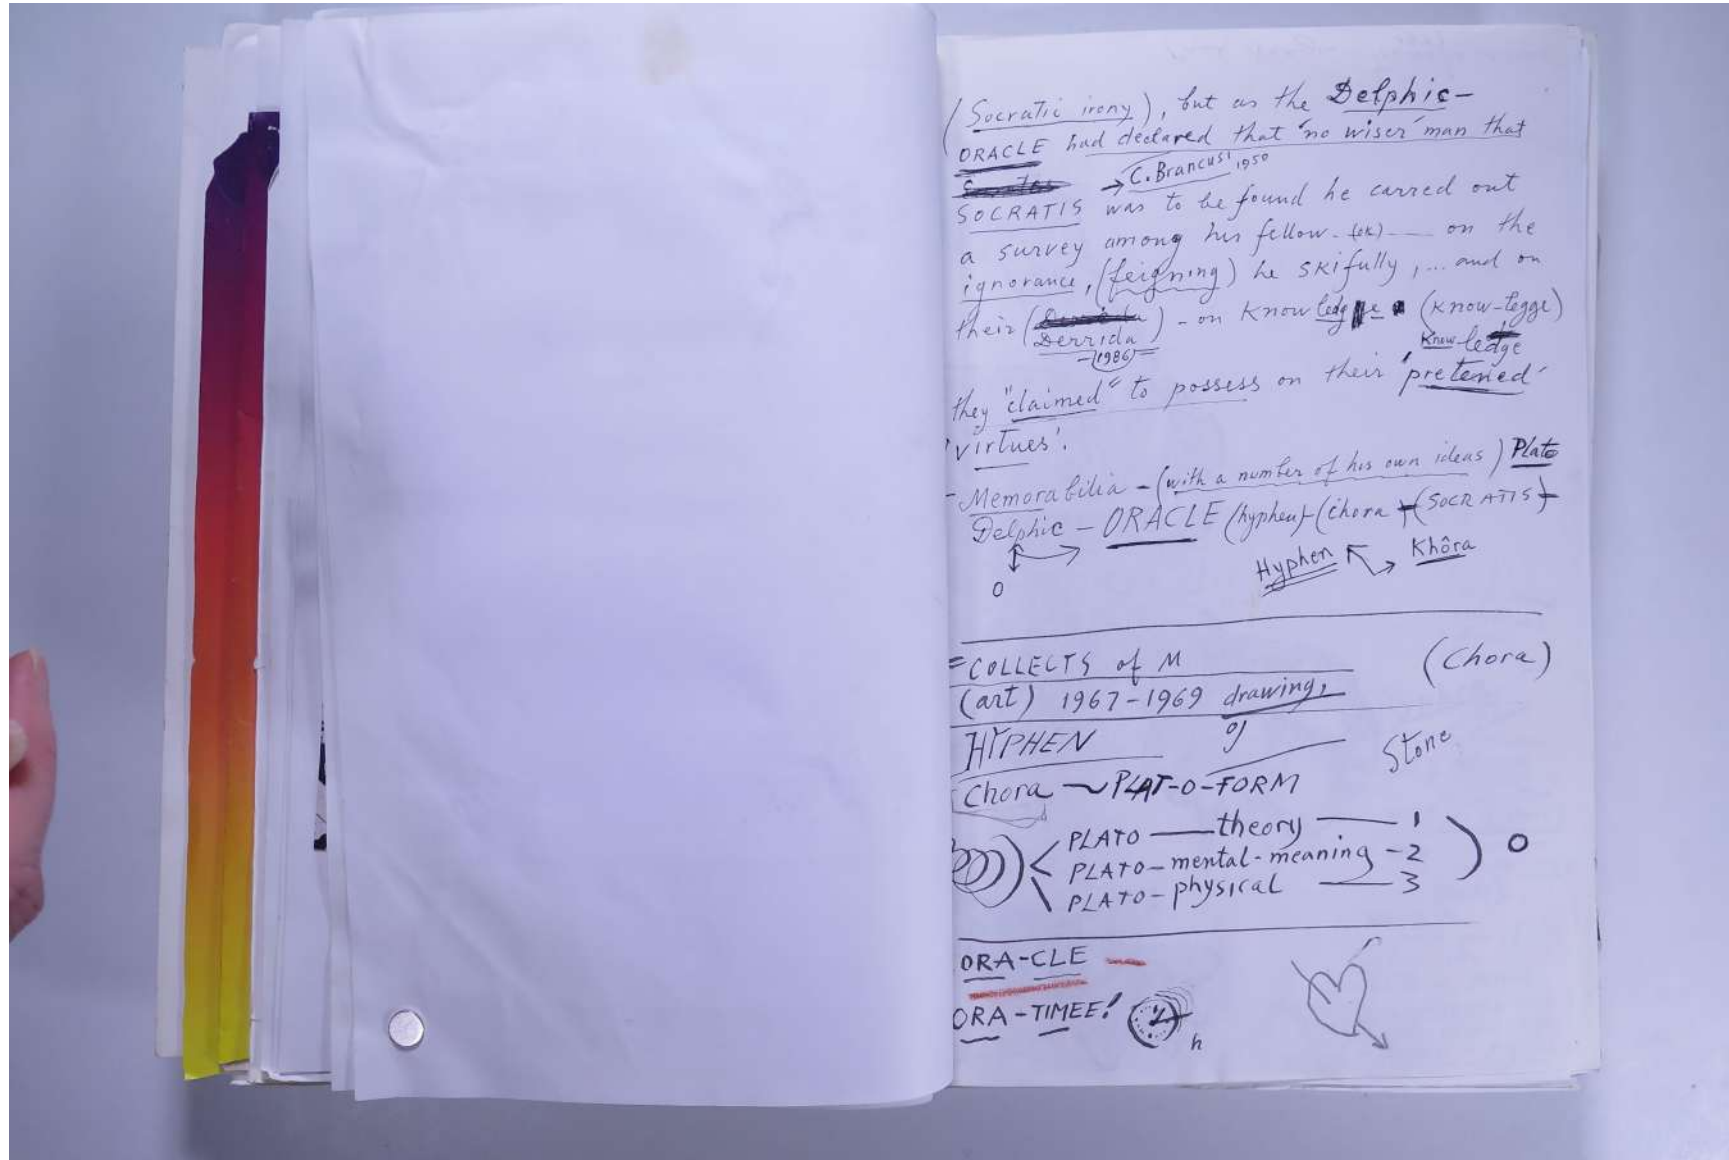 (Socratic irony), but as the Delphic-
ORACLE had declared that 'no wiser' man that
→ C. Brancusi 1950
SOCRATIS was to be found he carred out
a survey among his fellow- (ek) — on the
ignorance, (feigning) he skifully, ... and on
their (Derrida) - on Know ledg e (Know-legge)
-(1986)= Know ledge
they "claimed" to possess on their 'pretened'
'virtues'.
- Memorabilia - (with a number of his own ideas) Plato
Delphic - ORACLE (hyphen)-(chora -(SOCRATIS)-
Hyphen Khôra
O
= COLLECTS of M (Chora)
(art) 1967-1969 drawing,
HYPHEN of Stone
Chora ~ PLAT-O-FORM
PLATO — theory — 1
PLATO - mental - meaning - 2 O
PLATO - physical — 3
ORA-CLE -
ORA-TIMEE!
h